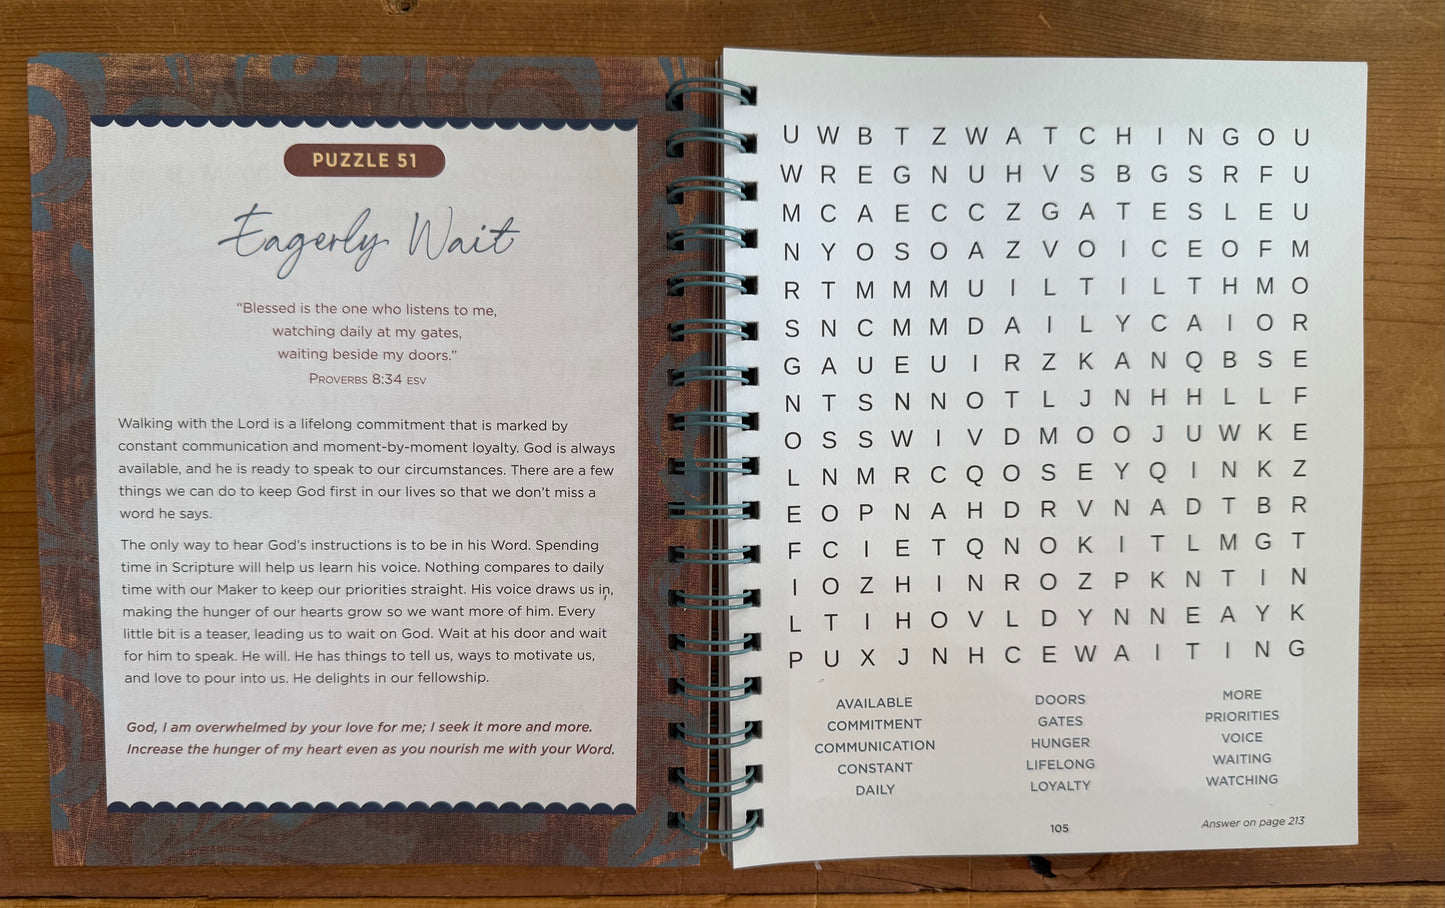 PUZZLE 51
Eagerly Wait
“Blessed is the one who listens to me,
watching daily at my gates,
waiting beside my doors.”
PROVERBS 8:34 ESV
Walking with the Lord is a lifelong commitment that is marked by
constant communication and moment-by-moment loyalty. God is always
available, and he is ready to speak to our circumstances. There are a few
things we can do to keep God first in our lives so that we don’t miss a
word he says.
The only way to hear God’s instructions is to be in his Word. Spending
time in Scripture will help us learn his voice. Nothing compares to daily
time with our Maker to keep our priorities straight. His voice draws us in,
making the hunger of our hearts grow so we want more of him. Every
little bit is a teaser, leading us to wait on God. Wait at his door and wait
for him to speak. He will. He has things to tell us, ways to motivate us,
and love to pour into us. He delights in our fellowship.
God, I am overwhelmed by your love for me; I seek it more and more.
Increase the hunger of my heart even as you nourish me with your Word.
U W B T Z W A T C H I N G O U
W R E G N U H V S B G S R F U
M C A E C C Z G A T E S L E U
N Y O S O A Z V O I C E O F M
R T M M M U I L T I L T H M O
S N C M M D A I L Y C A I O R
G A U E U I R Z K A N Q B S E
N T S N N O T L J N H H L L F
O S S W I V D M O O J U W K E
L N M R C Q O S E Y Q I N K Z
E O P N A H D R V N A D T B R
F C I E T Q N O K I T L M G T
I O Z H I N R O Z P K N T I N
L T I H O V L D Y N N E A Y K
P U X J N H C E W A I T I N G
AVAILABLE
COMMITMENT
COMMUNICATION
CONSTANT
DAILY
DOORS
GATES
HUNGER
LIFELONG
LOYALTY
MORE
PRIORITIES
VOICE
WAITING
WATCHING
105
Answer on page 213